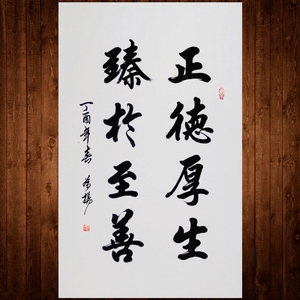 正德厚生
臻於至善
丁酉年春